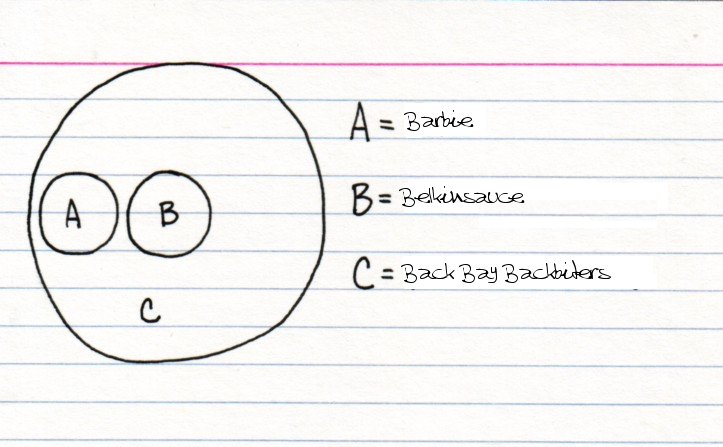 A = Barbie
B = Belkinsauce
A B
C = Back Bay Backbiters
C